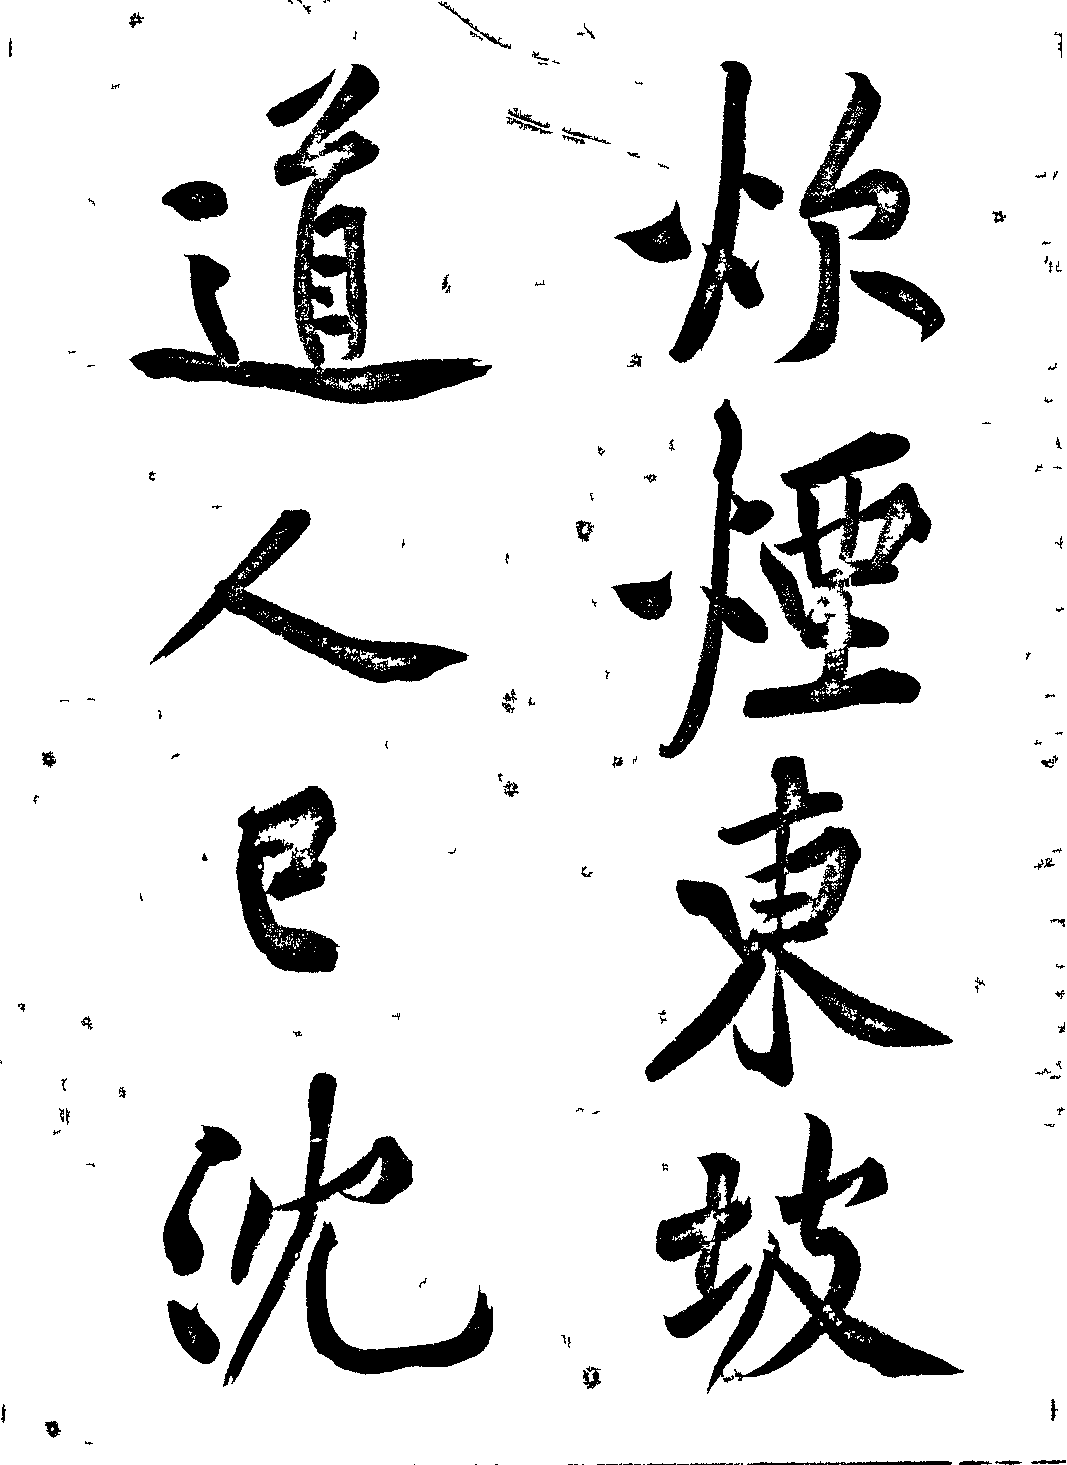 炊煙東坡
道人已沈